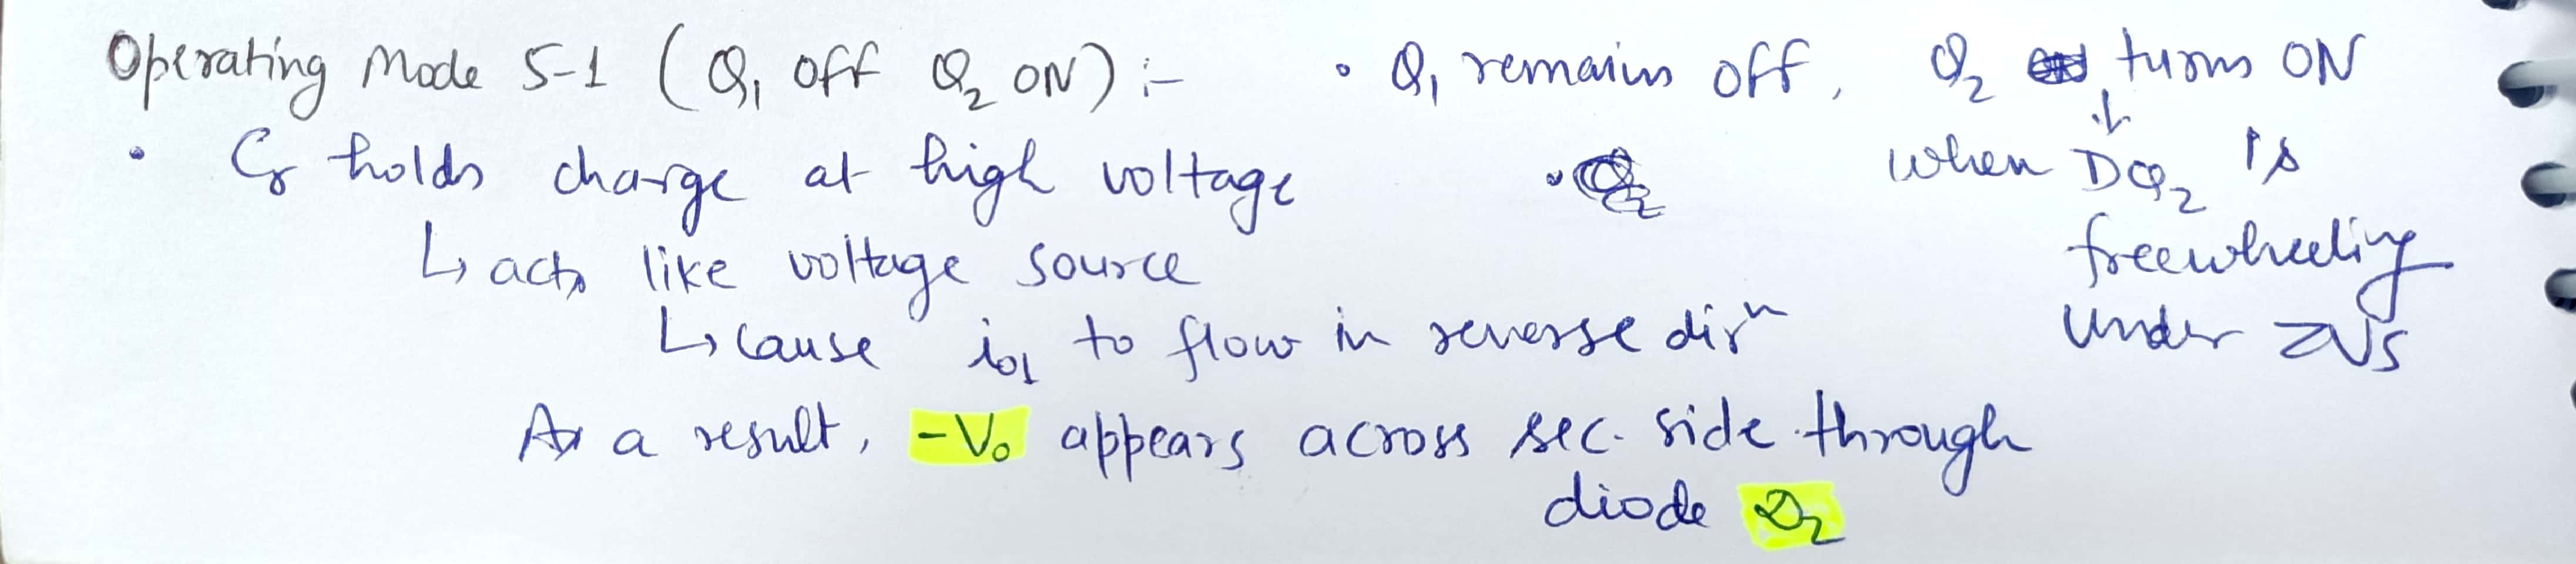 Operating Mode 5-1 (Q₁ Off Q₂ ON) :-
• Cr holds charge at high voltage
↳ acts like voltage source
↳ cause to flow in reverse dirⁿ
As a result, -V₀ appears across sec. side through
diode D₂
• Q₁ remains off, Q₂ turns ON
↓
when DQ₂ is
freewheeling
under ZVS